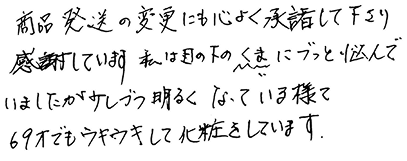 商品発送の変更にも心よく承諾して下さり
感謝しています 私は目の下のくまにづっと悩んで
いましたが少しづつ明るくなっている様で
69才でもウキウキして化粧をしています.